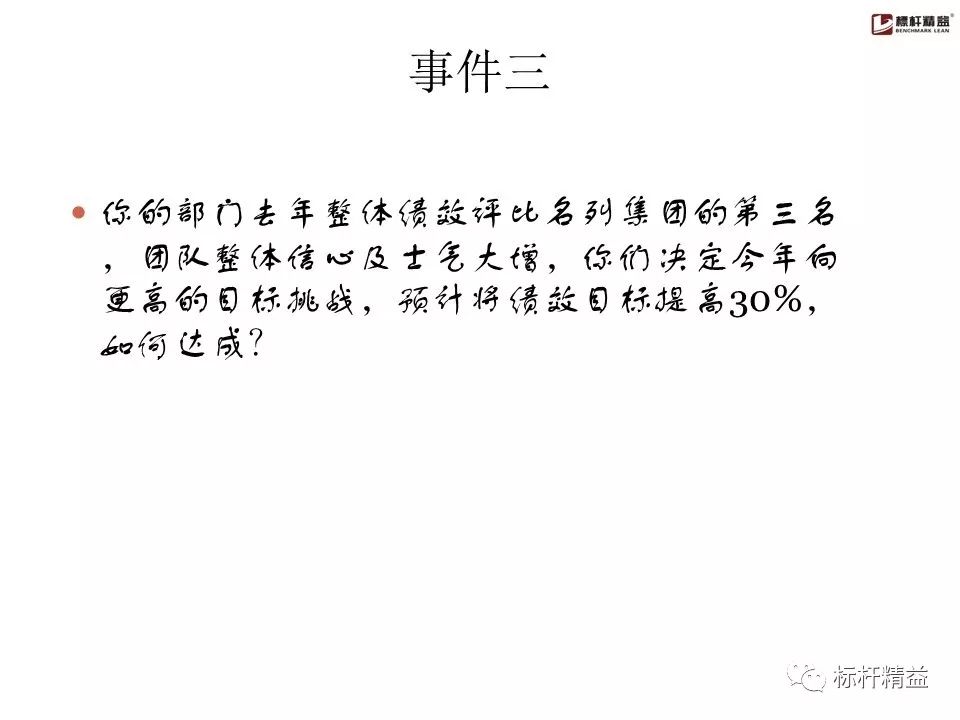 标杆精益®
BENCHMARK LEAN
事件三
• 你的部门去年整体绩效评比名列集团的第三名
，团队整体信心及士气大增，你们决定今年向
更高的目标挑战，预计将绩效目标提高30%，
如何达成？
标杆精益